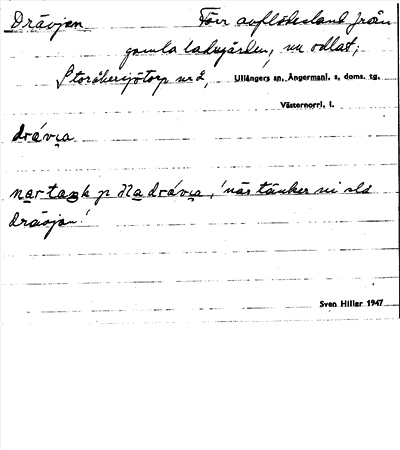 Drävjan Förr avflödesland från
gamla ladugården, nu odlat;
Storåker nr 2, Ullångers sn, Ångermanl. s. doms. tg.
Västernorrl. l.
drávɩ̨a
nar tank p Na drávɩ̨a, 'när tänker ni slå
drävjan'
Sven Hiller 1947